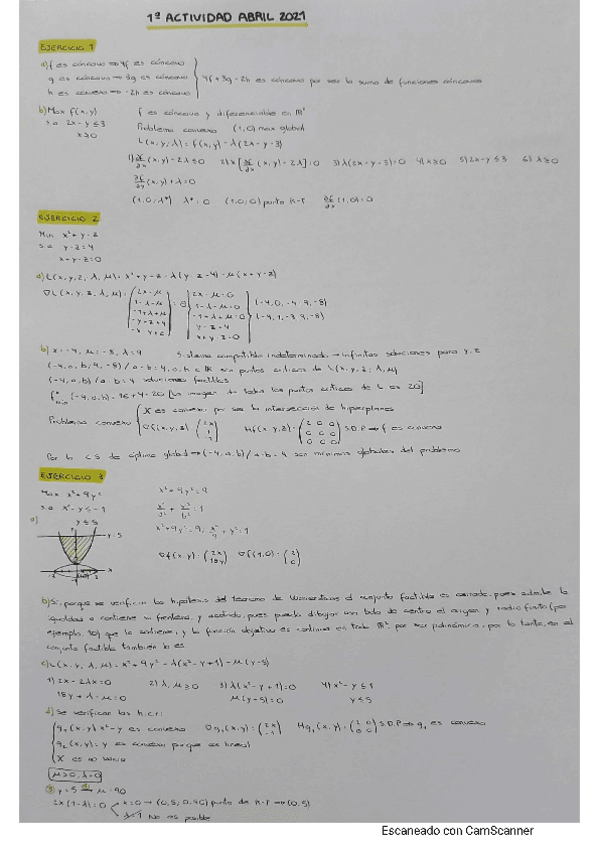 1ª ACTIVIDAD ABRIL 2021
EJERCICIO 1
a) f es cóncava → 4f es cóncava
g es cóncava → 3g es cóncava
h es convexa → -2h es cóncava
4f + 3g - 2h es cóncava por ser la suma de funciones cóncavas
b) Max f(x,y)
s.a 2x - y ≤ 3
x ≥ 0
f es cóncava y diferenciable en R²
Problema convexo (1,0) max global
L(x,y,λ) = f(x,y) - λ(2x - y - 3)
1) ∂f/∂x (x,y) - 2λ ≤ 0 2) x[∂f/∂x (x,y) - 2λ] = 0 3) λ(2x - y - 3) = 0 4) x ≥ 0 5) 2x - y ≤ 3 6) λ ≥ 0
∂f/∂y (x,y) + λ = 0
(1,0,λ*) λ* = 0 (1,0,0) punto K-T ∂f/∂x (1,0) = 0
EJERCICIO 2
Min x² + y - z
s.a y - z = 4
x + y - z = 0
a) L(x,y,z,λ,μ) = x² + y - z - λ(y - z - 4) - μ(x + y - z)
∇L(x,y,z,λ,μ) =
2x - μ = 0
1 - λ - μ = 0
-1 + λ + μ = 0
y - z = 4
x + y - z = 0
(-4, 0, -4, 9, -8)
(-4, 1, -3, 9, -8)
b) x = -4, μ = -8, λ = 9 Sistema compatible indeterminado → infinitas soluciones para y, z
son puntos críticos de L(x,y,z,λ,μ)
(-4,a,b) / a - b = 4 soluciones factibles
(-4,a,b) = 16 + 4 = 20 [La imagen de todos los puntos críticos de L es 20]
Problema convexo
X es convexo por ser la intersección de hiperplanos
∇f(x,y,z) = Hf(x,y,z) = S.D.P → f es convexa
de óptimo global → (-4,a,b) / a - b = 4 son mínimos globales del problema
EJERCICIO 3
Max x² + 9y²
s.a x² - y ≤ -1
y ≤ 5
x² + 9y² = 9
a)
y = 5
∇f(x,y) = (2x 18y) ∇f(1,0) = (2 0)
b) Sí, porque se verifican las hipótesis del teorema de Weierstrass el conjunto factible es cerrado, pues admite la
igualdad o contiene su frontera, y acotado, pues puedo dibujar una bola de centro el origen y radio finito (por
ejemplo, 10) que lo contiene, y la función objetivo es continua en todo R², por ser polinómica, por lo tanto, en el
conjunto factible también lo es
c) L(x,y,λ,μ) = x² + 9y² - λ(x² - y + 1) - μ(y - 5)
1) 2x - 2λx = 0 2) λ, μ ≥ 0 3) λ(x² - y + 1) = 0
18y + λ - μ = 0 μ(y - 5) = 0 y ≤ 5
d) Se verifican las h.c.r:
g₁(x,y) x² - y es convexa ∇g₁(x,y) = Hg₁(x,y) = S.D.P → g₁ es convexa
g₂(x,y) = y es convexa porque es lineal
X es no vacío
μ > 0, λ = 0
y = 5 → μ = 90
2x(1 - λ) = 0 x = 0 → (0,5,0,90) punto de K-T → (0,5)
λ = 1 No es posible
Escaneado con CamScanner